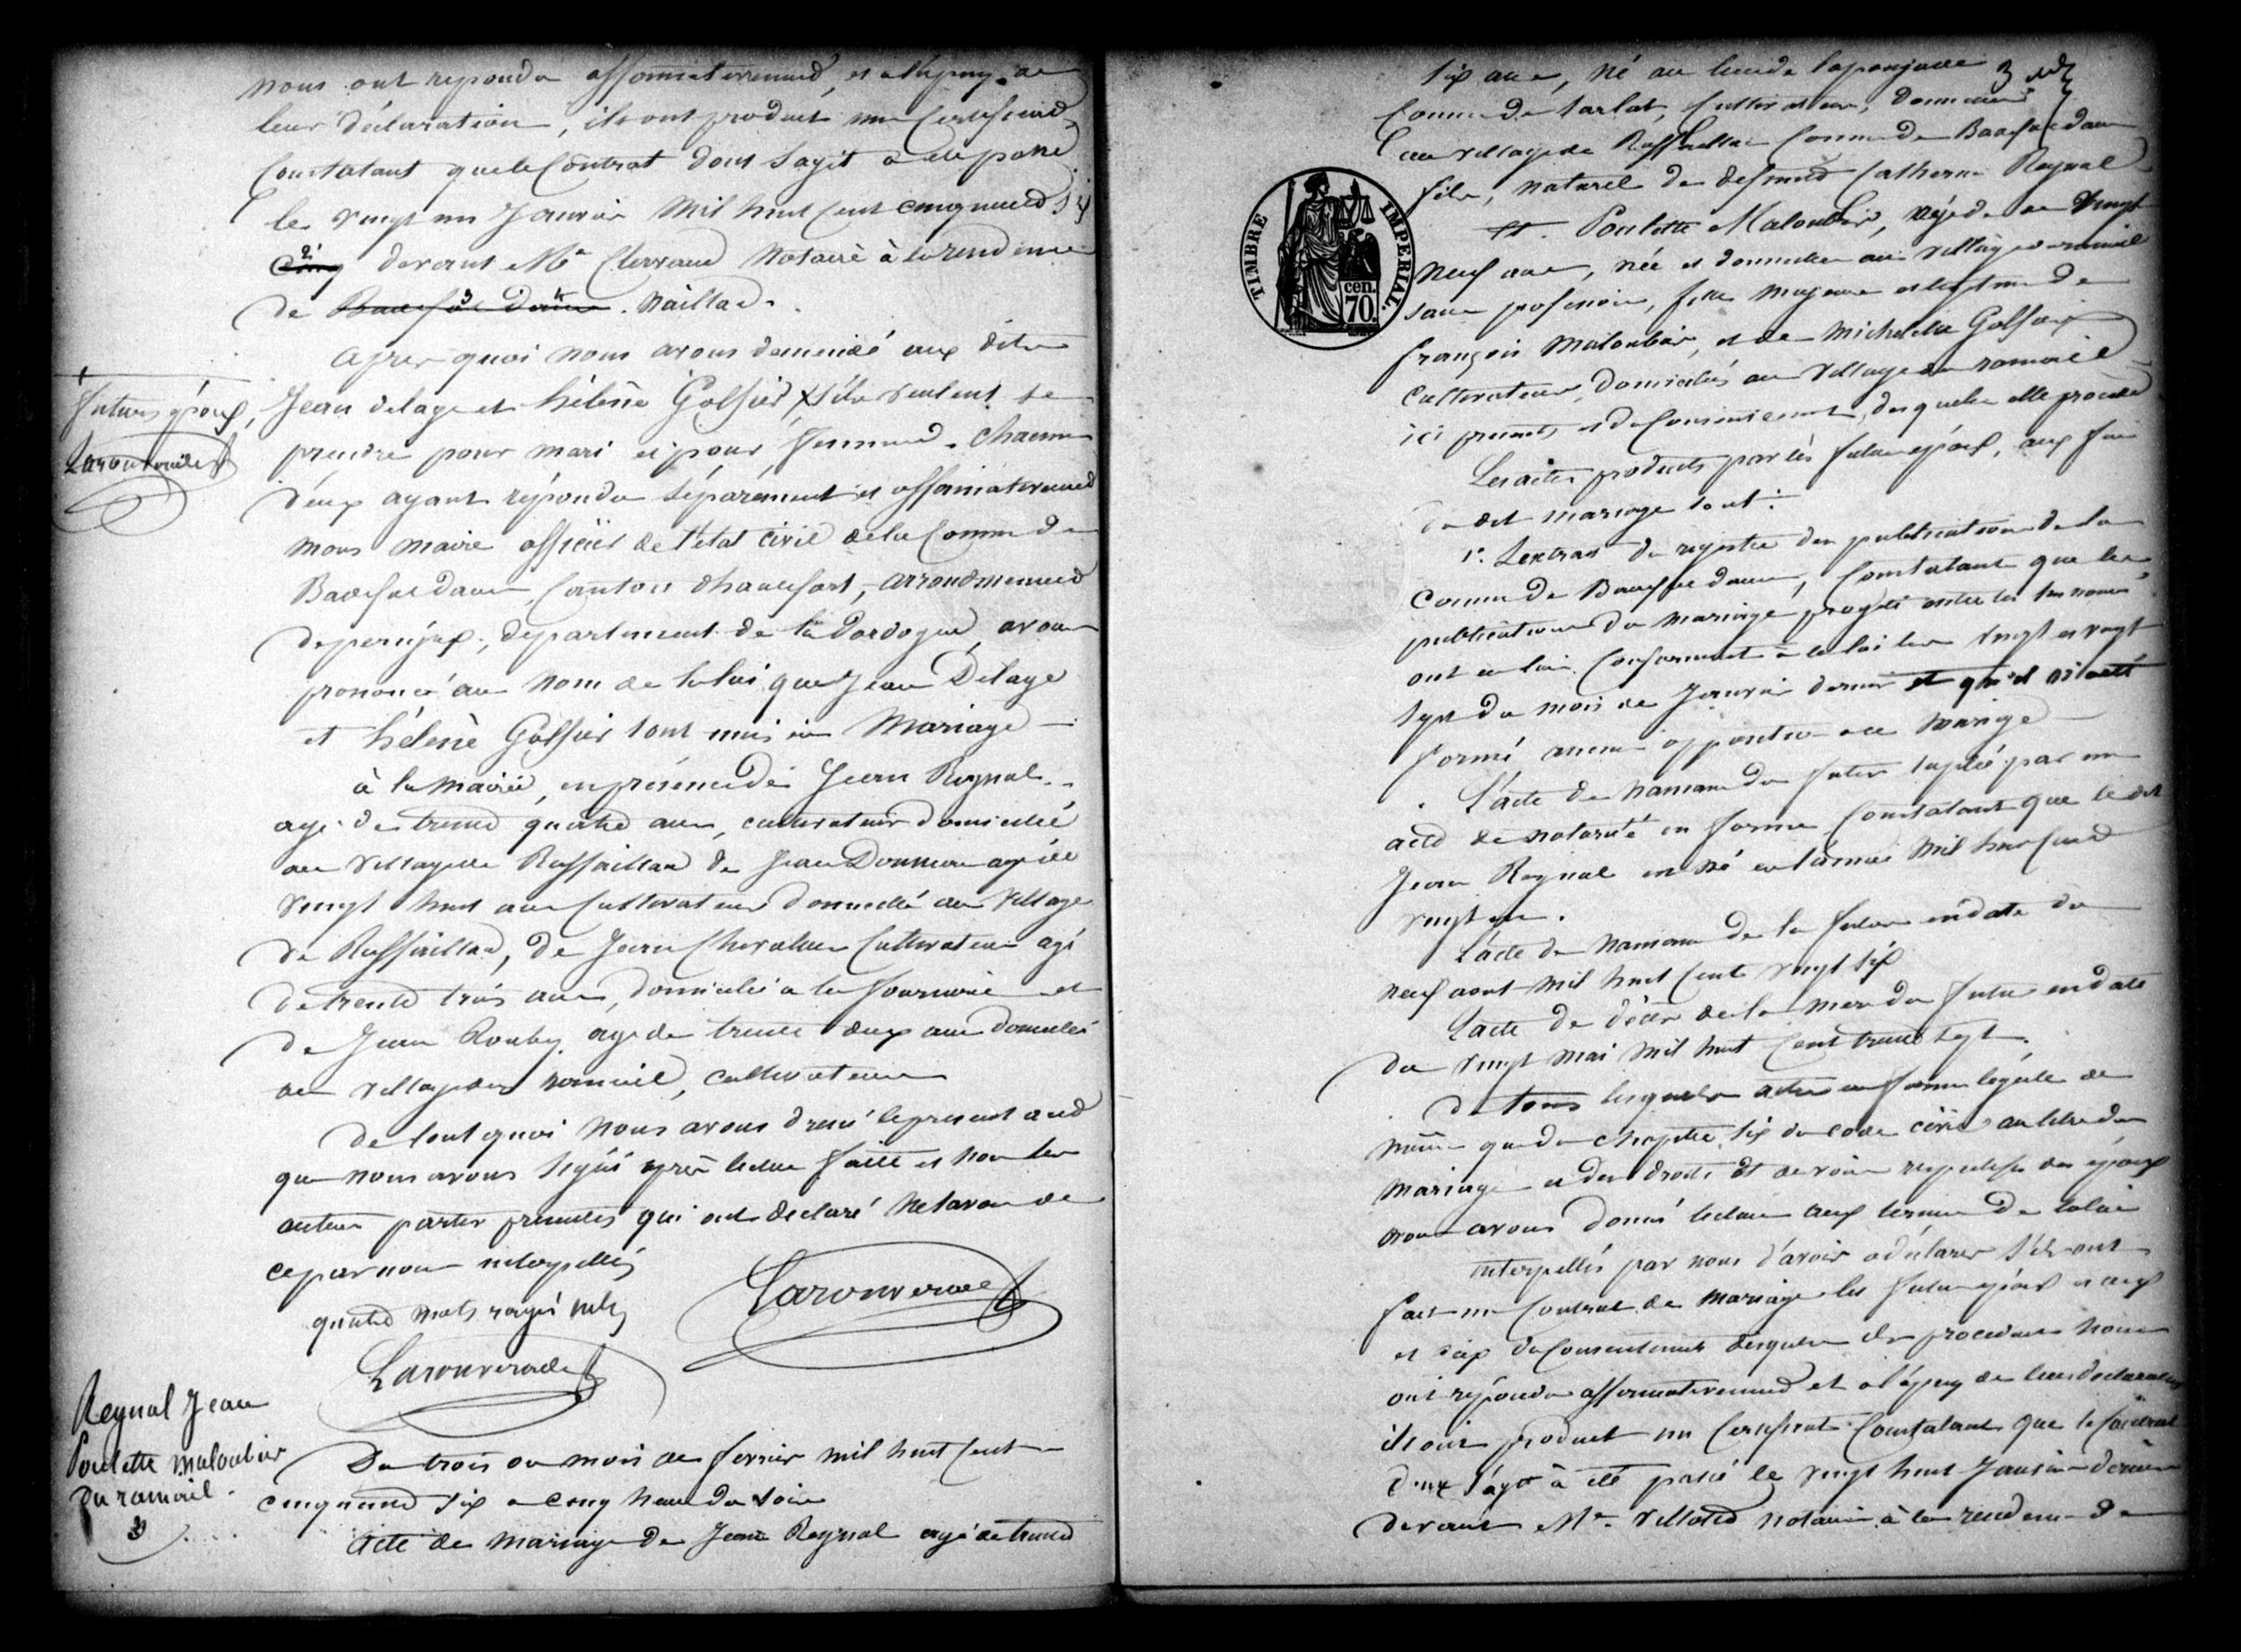 nous ont repondu affirmativement, et a l'apuy de
leur déclaration, ils ont produit un Certificat
Constatant que le Contrat dont s'agit a ete passé
le vingt un Janvier mil huit cent cinquante six
cinq devant Me notaire à la residence
de Badefol Dans. Naillac.
Après quoi nous avons demandé aux dits
futurs époux,
Larouverade
Jean delage et hélène Golfier, s'ils veulent se
prendre pour mari et pour femme. Chacun
d'eux ayant répondu séparément et affirmativement
nous maire officier de l'état civil de la Commune de
Badefol dans, Canton d'hautefort, arrondissement
de perigeux, département de la Dordogne, avons
prononcé au nom de la loi que Jean Delage
et hélène Golfier sont unis en Mariage
à la mairie, en présence de Jean Reynal
agé de trente quatre ans, cultivateur domicilié
au village de Ruffaillac de Jean agé de
vingt huit ans Cultivateur domicilié au village
de Ruffaillac, de Jean Chevalier Cultivateur agé
de trente trois ans, domicilié a la et
de Jean Rouby agé de trente deux ans domicilié
au village du ramieil, cultivateur
De tout quoi nous avons dressé le present acte
que nous avons signé après lecture faite et non les
autres parties presentes qui ont declaré ne savoir de
ce par nous interpellés
quatre mots rayés nuls
Larouverade
Larouverade
Reynal Jean
Poulette maloubier
du ramieil.
3
Du trois du mois de fevrier mil huit cent
cinquante six a cinq heures du soir
Acte de mariage de Jean Reynal agé de trente
3
six ans, né au lieu de
Commune de Sarlat, Cultivateur, domicilié
au village de Ruffaillac Commune de Badefol dans
fils, naturel de defunte Catherine Reynal
Et Poulette Maloubier, agée de vingt
neuf ans, née et domiciliée au village du ramieil
sans profession, fille majeure et legitime de
françois Maloubier, et de Michelette Golfier
Cultivateurs, domiciliés au village du ramieil
ici presents et du Consentement desquels elle procede
Les actes produits par les futurs époux, aux fins
du dit mariage sont:
1º. L'extrait du registre des publications de la
Commune de Badefol dans, Constatant que les
publications du mariage projeté entre les susnommés
ont eu lieu Conformement à la loi les vingt et vingt
sept du mois de Janvier dernier et qu'il n'a été
formé aucune opposition au mariage
L'acte de naissance du futur supléé par un
acte de notorieté en forme Constatant que le dit
Jean Reynal est né en l'année mil huit cent
vingt
L'acte de naissance de la future en date du
neuf aout mil huit cent vingt six
L'acte de décès de la mere du futur en date
du vingt mai mil huit cent trente sept.
De tous lesquels actes en forme legale de
même que du chapitre six du code civil au titre du
mariage et des droits et devoirs respectifs des époux
nous avons donné lecture aux termes de la loi
interpellés par nous d'avoir a déclarer s'ils ont
fait un Contrat de mariage les futurs époux et ceux
et du Consentement desquels ils procedent nous
ont repondu affirmativement et a l'apuy de leur declaration
ils ont produit un Certificat Constatant que le Contrat
dont s'agit à été passé le vingt huit Janvier dernier
devant Me. notaire à la residence de
TIMBRE IMPERIAL.
70.
cen.